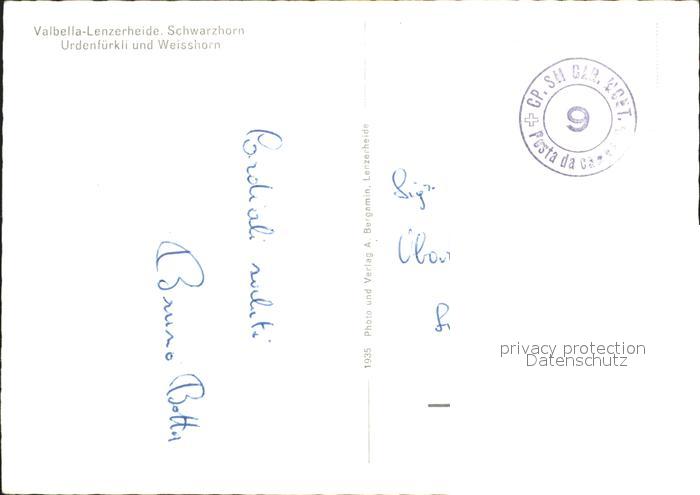 Valbella-Lenzerheide. Schwarzhorn
Urdenfürkli und Weisshorn
Cordiali saluti
Bruno Botta
1935 Photo und Verlag A. Bergamin, Lenzerheide
CP. SM GAR. MONT. 9
Posta da
9
privacy protection
Datenschutz